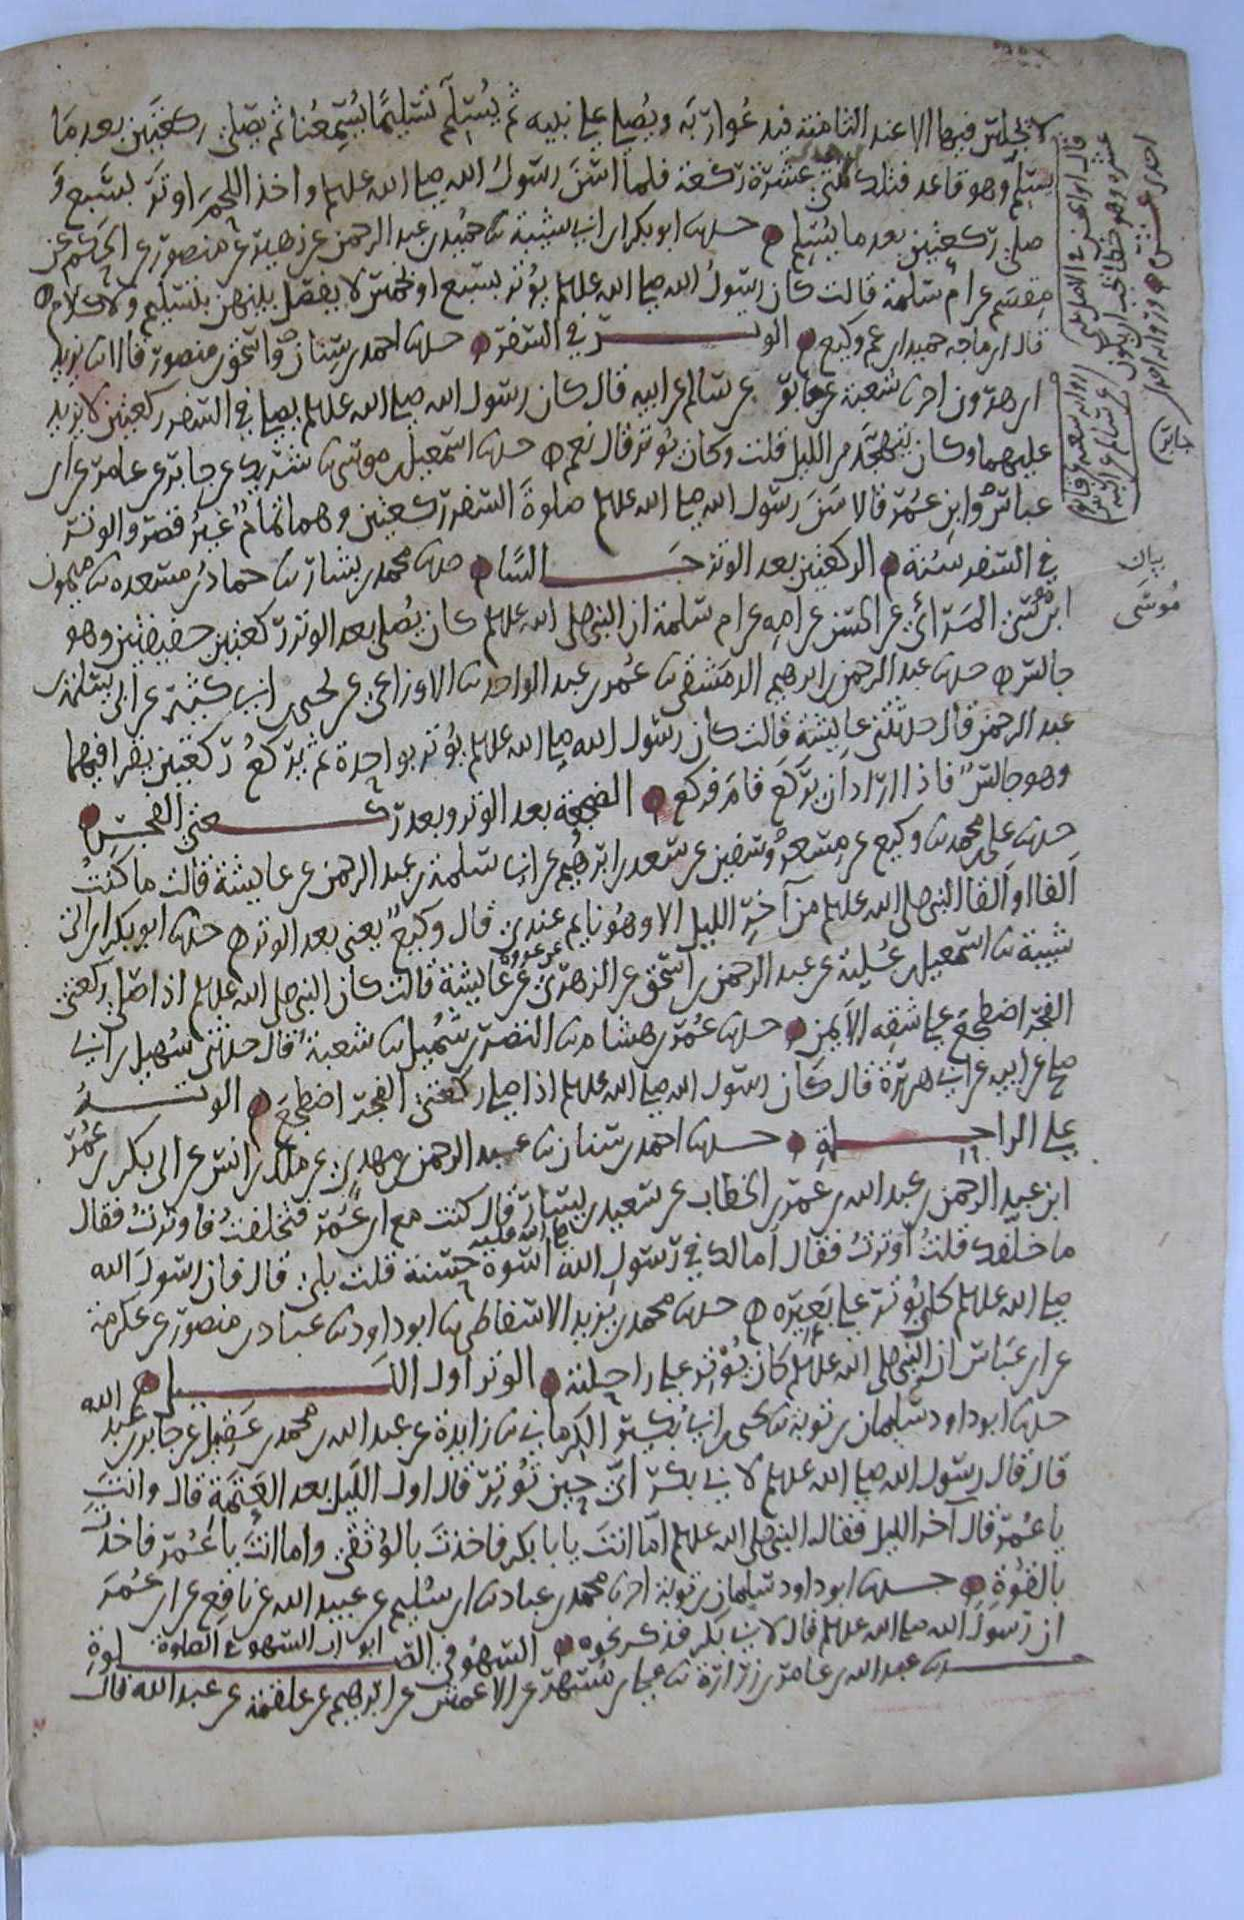 لا يجلس فيها الا عند الثامنة فيدعوا ربه ويصلي على نبيه ثم يسلم تسليما يسمعنا ثم يصلي ركعتين بعد ما
يسلم وهو قاعد فتلك احدى عشرة ركعة فلما اسن رسول الله صلى الله عليه وسلم واخذ اللحم اوتر بسبع و
صلى ركعتين بعد ما يسلم حدثنا ابو بكر ابن ابي شيبة ثنا حميد بن عبد الرحمن عن زهير عن منصور عن الحكم عن
مقسم عن ام سلمة قالت كان رسول الله صلى الله عليه وسلم يوتر بسبع او خمس لا يفصل بينهن بتسليم ولا كلام
قال ابن ماجه حميد ابن عم وكيع الوتر في السفر حدثنا احمد بن سنان واسحق بن منصور قالا ثنا يزيد
ابن هرون اخبرنا شعبة عن جابر عن سالم عن ابيه قال كان رسول الله صلى الله عليه وسلم يصلي في السفر ركعتين لا يزيد
عليهما وكان يتهجد من الليل قلت وكان يوتر قال نعم حدثنا اسمعيل بن موسى ثنا شريك عن جابر عن عامر عن ابن
عباس وابن عمر قالا سن رسول الله صلى الله عليه وسلم صلوة السفر ركعتين وهما تمام غير قصر والوتر
في السفر سنة الركعتين بعد الوتر جالسا حدثنا محمد بن بشار ثنا حماد بن مسعدة ثنا ميمون
ابن موسى المرائي عن الحسن عن امه عن ام سلمة ان النبي صلى الله عليه وسلم كان يصلي بعد الوتر ركعتين خفيفتين وهو
جالس حدثنا عبد الرحمن بن ابرهيم الدمشقي ثنا عمر بن عبد الواحد ثنا الاوزاعي عن يحيى بن ابي كثير عن ابي سلمة بن
عبد الرحمن قال حدثتني عايشة قالت كان رسول الله صلى الله عليه وسلم يوتر بواحدة ثم يركع ركعتين يقرا فيهما
وهو جالس فاذا اراد ان يركع قام فركع الضجعة بعد الوتر وبعد ركعتي الفجر
حدثنا علي بن محمد ثنا وكيع عن مسعر وسفين عن سعد بن ابرهيم عن ابي سلمة بن عبد الرحمن عن عايشة قالت ما كنت
الفا او القا النبي صلى الله عليه وسلم من آخر الليل الا وهو نايم عندي قال وكيع يعني بعد الوتر حدثنا ابو بكر ابن ابي
شيبة ثنا اسمعيل بن علية عن عبد الرحمن بن اسحق عن الزهري عن عروة عن عايشة قالت كان النبي صلى الله عليه وسلم اذا صلى ركعتي
الفجر اضطجع على شقه الايمن حدثنا عمر بن هشام ثنا النضر بن شميل ثنا شعبة قال حدثني سهيل بن ابي
صالح عن ابيه عن ابي هريرة قال كان رسول الله صلى الله عليه وسلم اذا صلى ركعتي الفجر اضطجع الوتر
على الراحلة حدثنا احمد بن سنان ثنا عبد الرحمن بن مهدي عن ملك بن انس عن ابي بكر بن عمر
ابن عبد الرحمن بن عبد الله بن عمر بن الخطاب عن سعيد بن يسار قال كنت مع ابن عمر فتخلفت فاوترت فقال
ما خلفك قلت اوترت فقال اما لك في رسول الله صلى الله عليه اسوة حسنة قلت بلى قال فان رسول الله
صلى الله عليه وسلم كان يوتر على بعيره حدثنا محمد بن يزيد الاسفاطي ثنا ابو داود ثنا عباد بن منصور عن عكرمة
عن ابن عباس ان النبي صلى الله عليه وسلم كان يوتر على راحلته الوتر اول الليل
حدثنا ابو داود سليمان بن توبة ثنا يحيى بن ابي بكير الكرماني ثنا زايدة عن عبد الله بن محمد بن عقيل عن جابر بن عبد الله
قال قال رسول الله صلى الله عليه وسلم لابي بكر اي حين توتر قال اول الليل بعد العتمة قال وانت
يا عمر قال آخر الليل فقال النبي صلى الله عليه وسلم اما انت يا با بكر فاخذت بالوثقى واما انت يا عمر فاخذت
بالقوة حدثنا ابو داود سليمان بن توبة اخبرنا محمد بن عباد ثنا ابن سليم عن عبيد الله عن نافع عن ابن عمر
ان رسول الله صلى الله عليه وسلم قال لابي بكر فذكر نحوه السهو في الصلوة ابواب السهو في الصلوة
حدثنا عبد الله بن عامر بن زرارة ثنا علي بن مسهر عن الاعمش عن ابرهيم عن علقمة عن عبد الله قال
احدى عشر
بيان
موسى